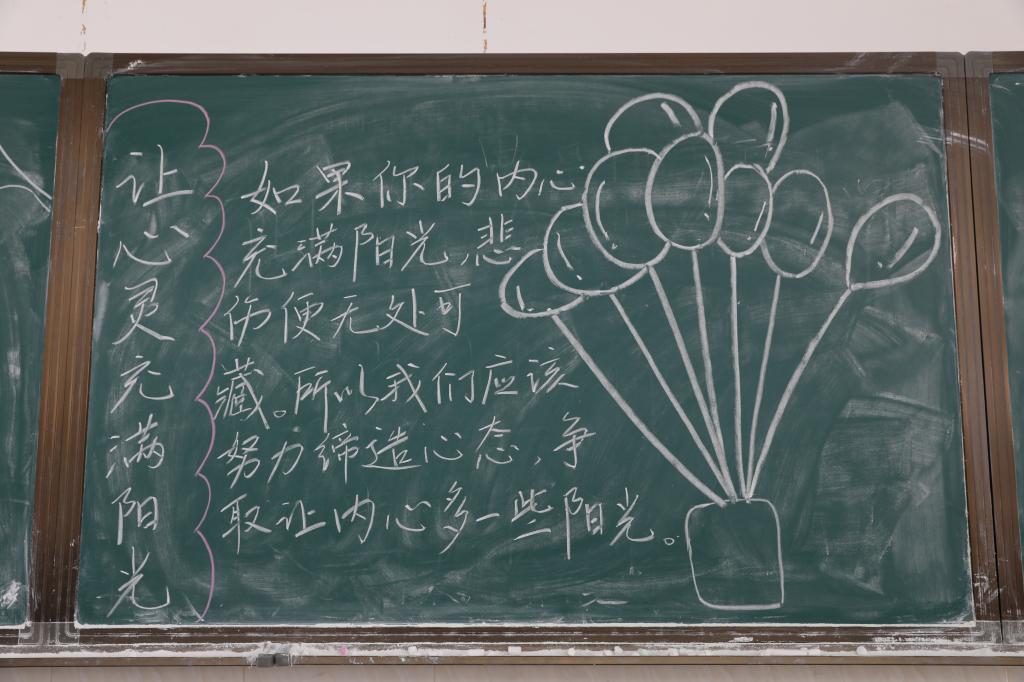 让心灵充满阳光
如果你的内心
充满阳光,悲
伤便无处可
藏。所以我们应该
努力缔造心态,争
取让内心多一些阳光。